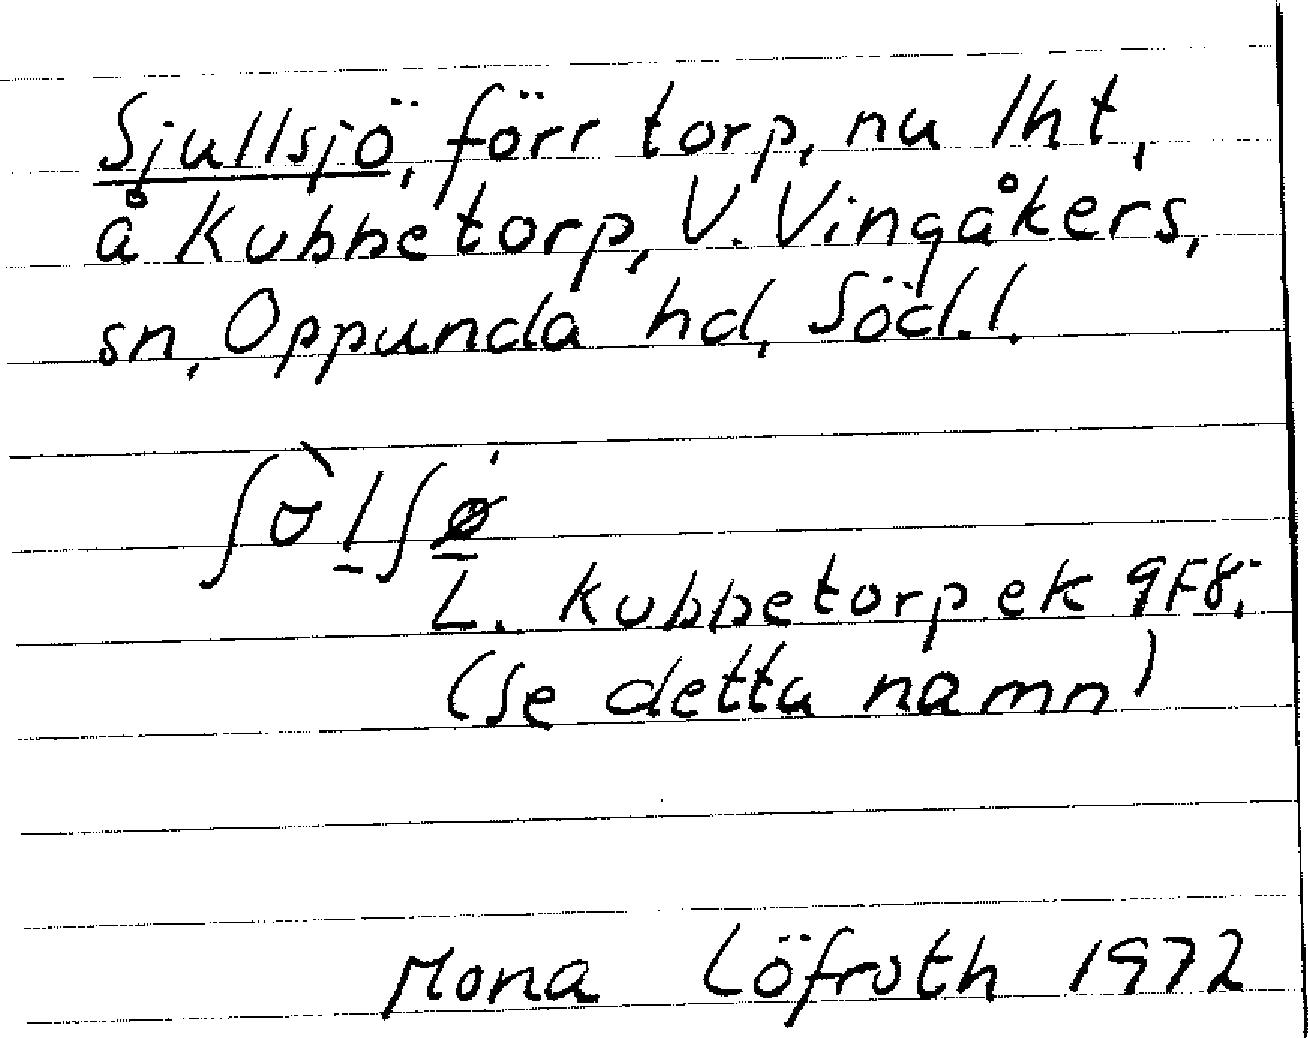 Sjullsjö, förr torp, nu lht,
å Kubbetorp, V. Vingåkers,
sn, Oppunda hd, Söd.l.
L. Kubbetorp ek 9F8;
(se detta namn)
Mona Löfroth 1972